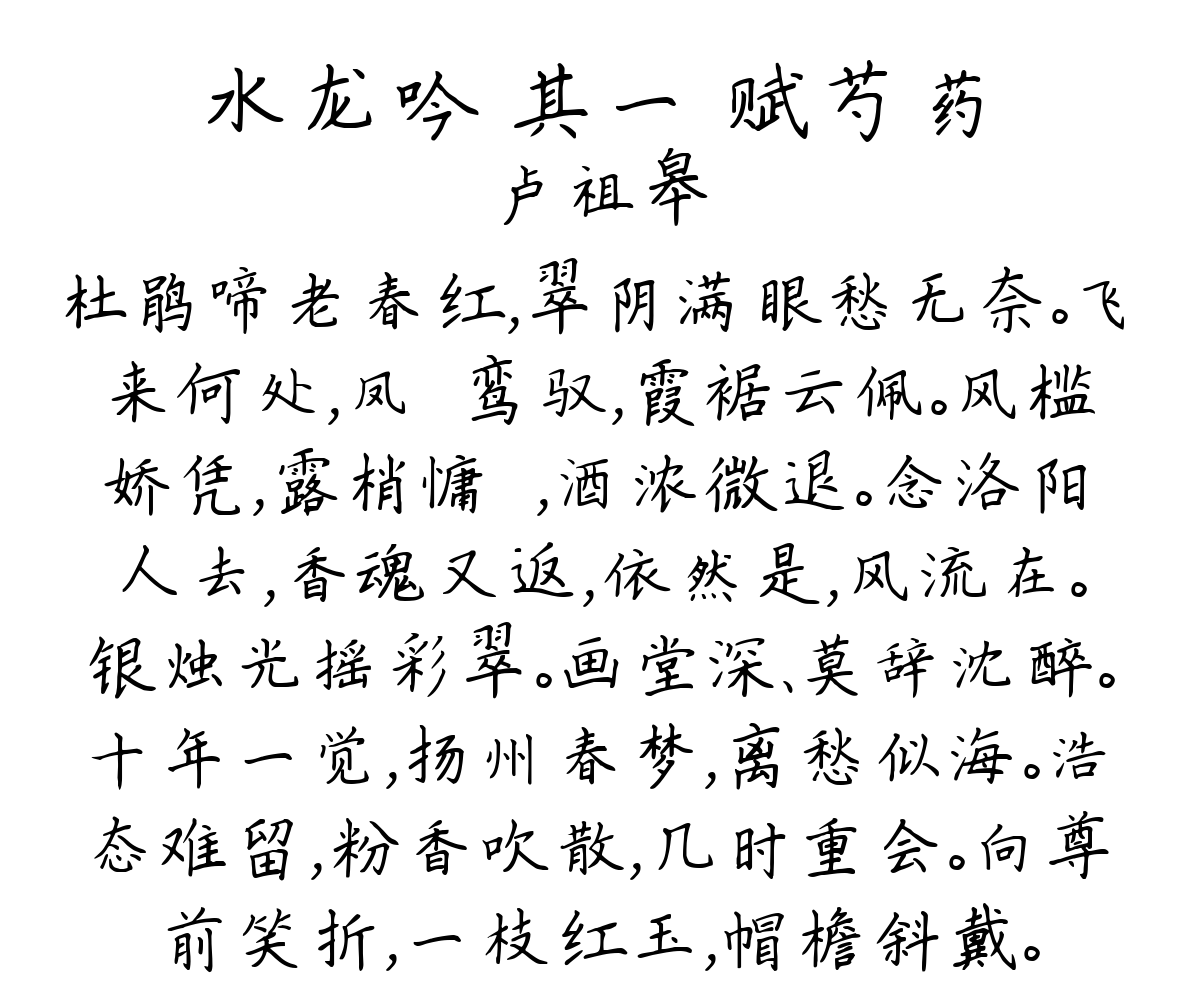 水龙吟 其一 赋芍药
卢祖皋
杜鹃啼老春红,翠阴满眼愁无奈。飞
来何处,凤 鸾驭,霞裾云佩。风槛
娇凭,露梢慵 ,酒浓微退。念洛阳
人去,香魂又返,依然是,风流在。
银烛光摇彩翠。画堂深、莫辞沈醉。
十年一觉,扬州春梦,离愁似海。浩
态难留,粉香吹散,几时重会。向尊
前笑折,一枝红玉,帽檐斜戴。